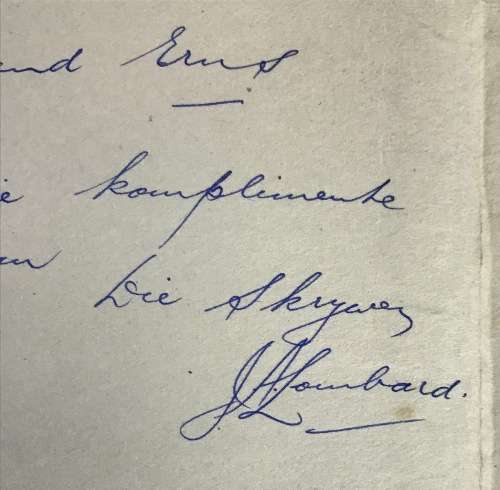 end Erns
ie komplimente
an Die Skrywer
J.A. Lombard.